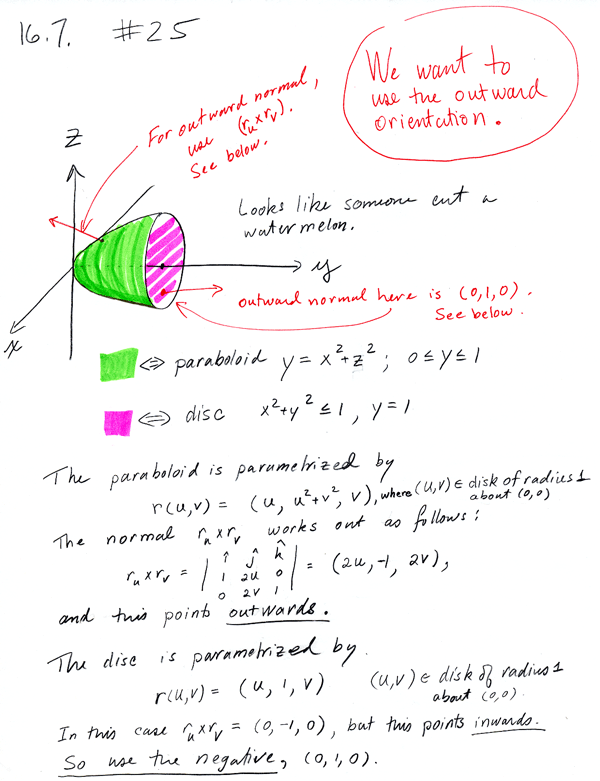 16.7. #25
We want to
use the outward
orientation.
For outward normal,
use (r_u x r_v).
See below.
z
Looks like someone cut a
watermelon.
y
outward normal here is (0,1,0).
See below.
x
⇔ paraboloid y = x²+z² ; 0≤y≤1
⇔ disc x²+y² ≤ 1, y=1
The paraboloid is parametrized by
r(u,v) = (u, u²+v², v), where (u,v) ∈ disk of radius 1
about (0,0)
The normal r_u x r_v works out as follows:
r_u x r_v = | î ĵ k̂ |
| 1 2u 0 | = (2u, -1, 2v),
| 0 2v 1 |
and this points outwards.
The disc is parametrized by.
r(u,v) = (u, 1, v) (u,v) ∈ disk of radius 1
about (0,0).
In this case r_u x r_v = (0,-1,0), but this points inwards.
So use the negative, (0,1,0).